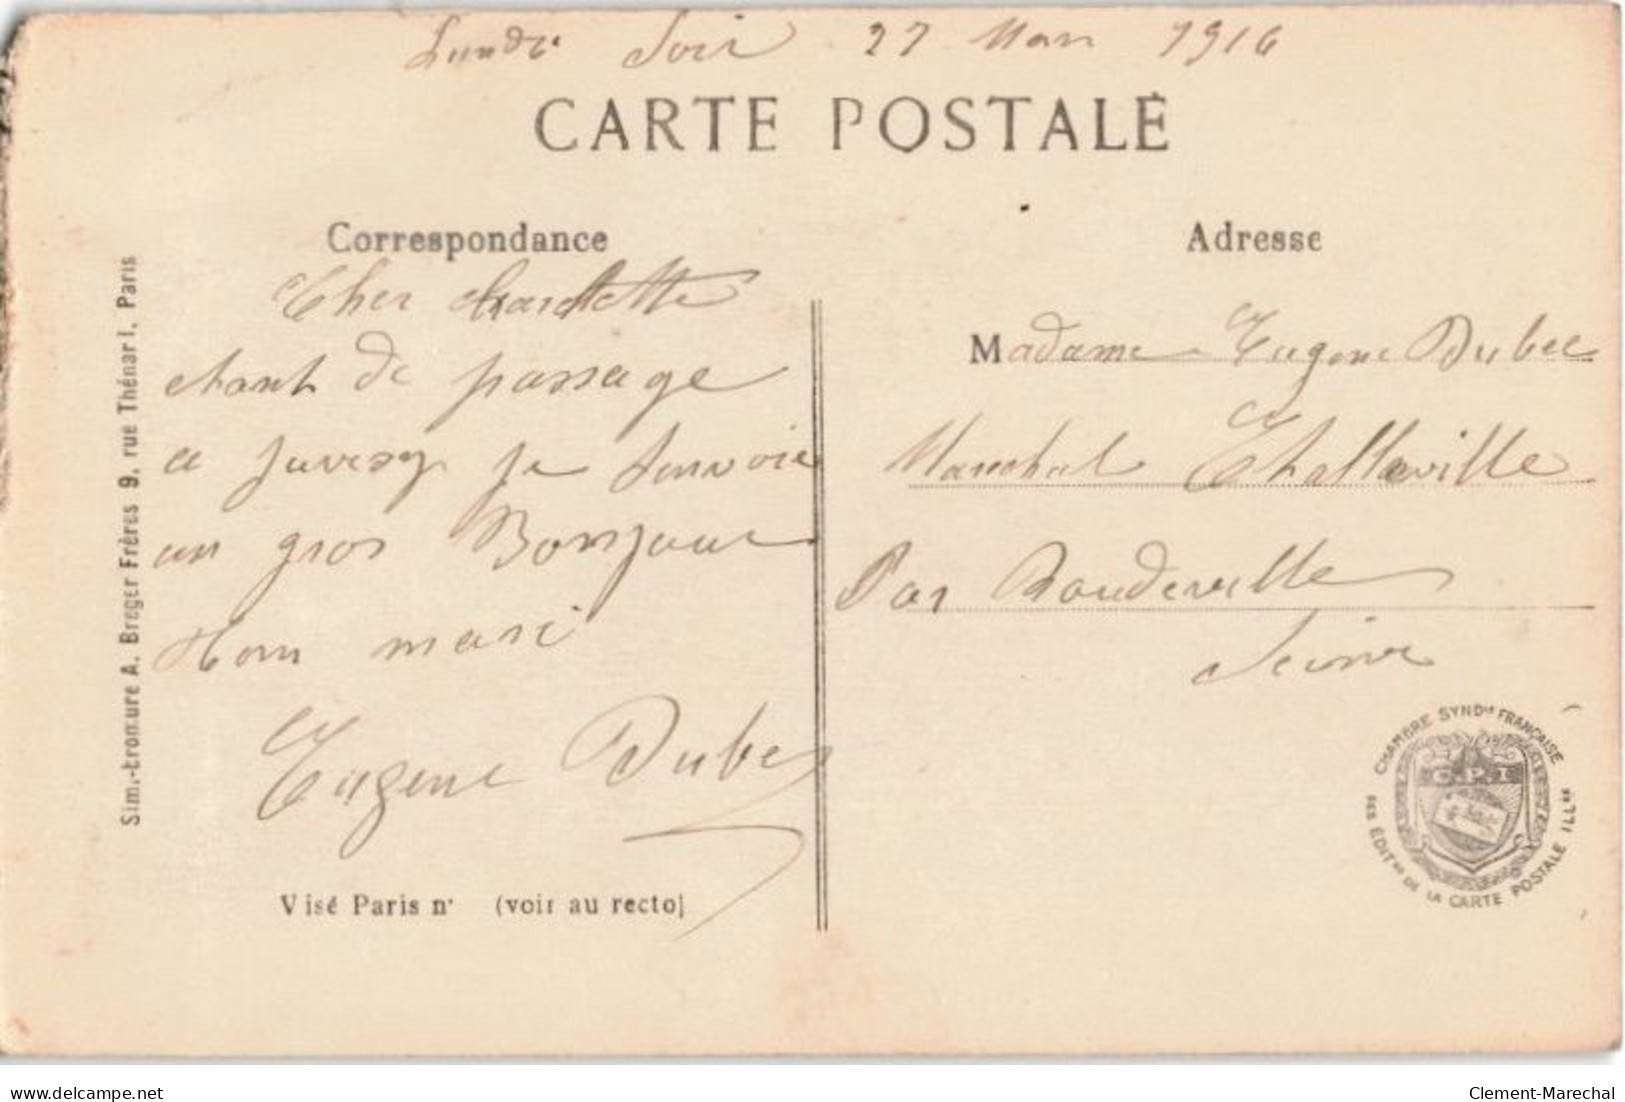 Lundi Soir 27 Mars 1916
CARTE POSTALE
Correspondance
Cher Charlotte
etant de passage
a Juvisy je tenvoie
un gros Bonjour
Ton mari
Eugene Dubec
Visé Paris nº (voir au recto)
Sim.-bromure A. Breger Frères 9, rue Thénard, Paris
Adresse
Madame Eugene Dubec
Marechal Ethalleville
Par Doudeville
Seine
CHAMBRE SYNDle FRANÇAISE
DES ÉDITrs DE LA CARTE POSTALE ILLée
C.P.I
delcampe.net
Clement-Marechal